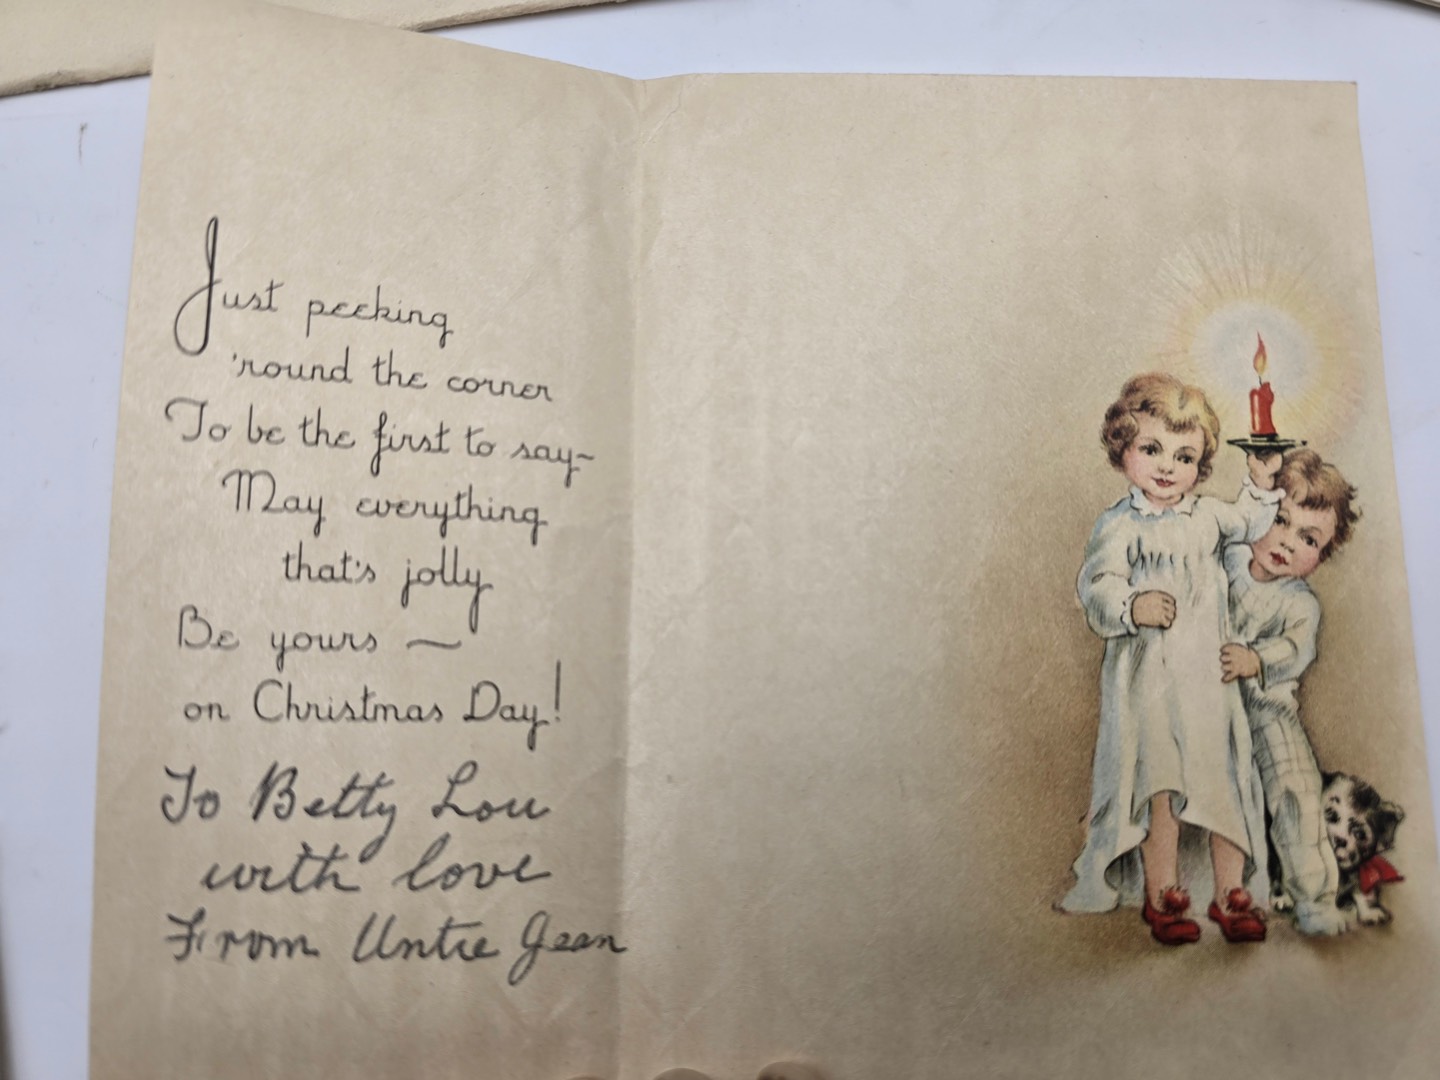 Just peeking
'round the corner
To be the first to say~
May everything
that's jolly
Be yours ~
on Christmas Day!
To Betty Lou
with love
From Untie Jean